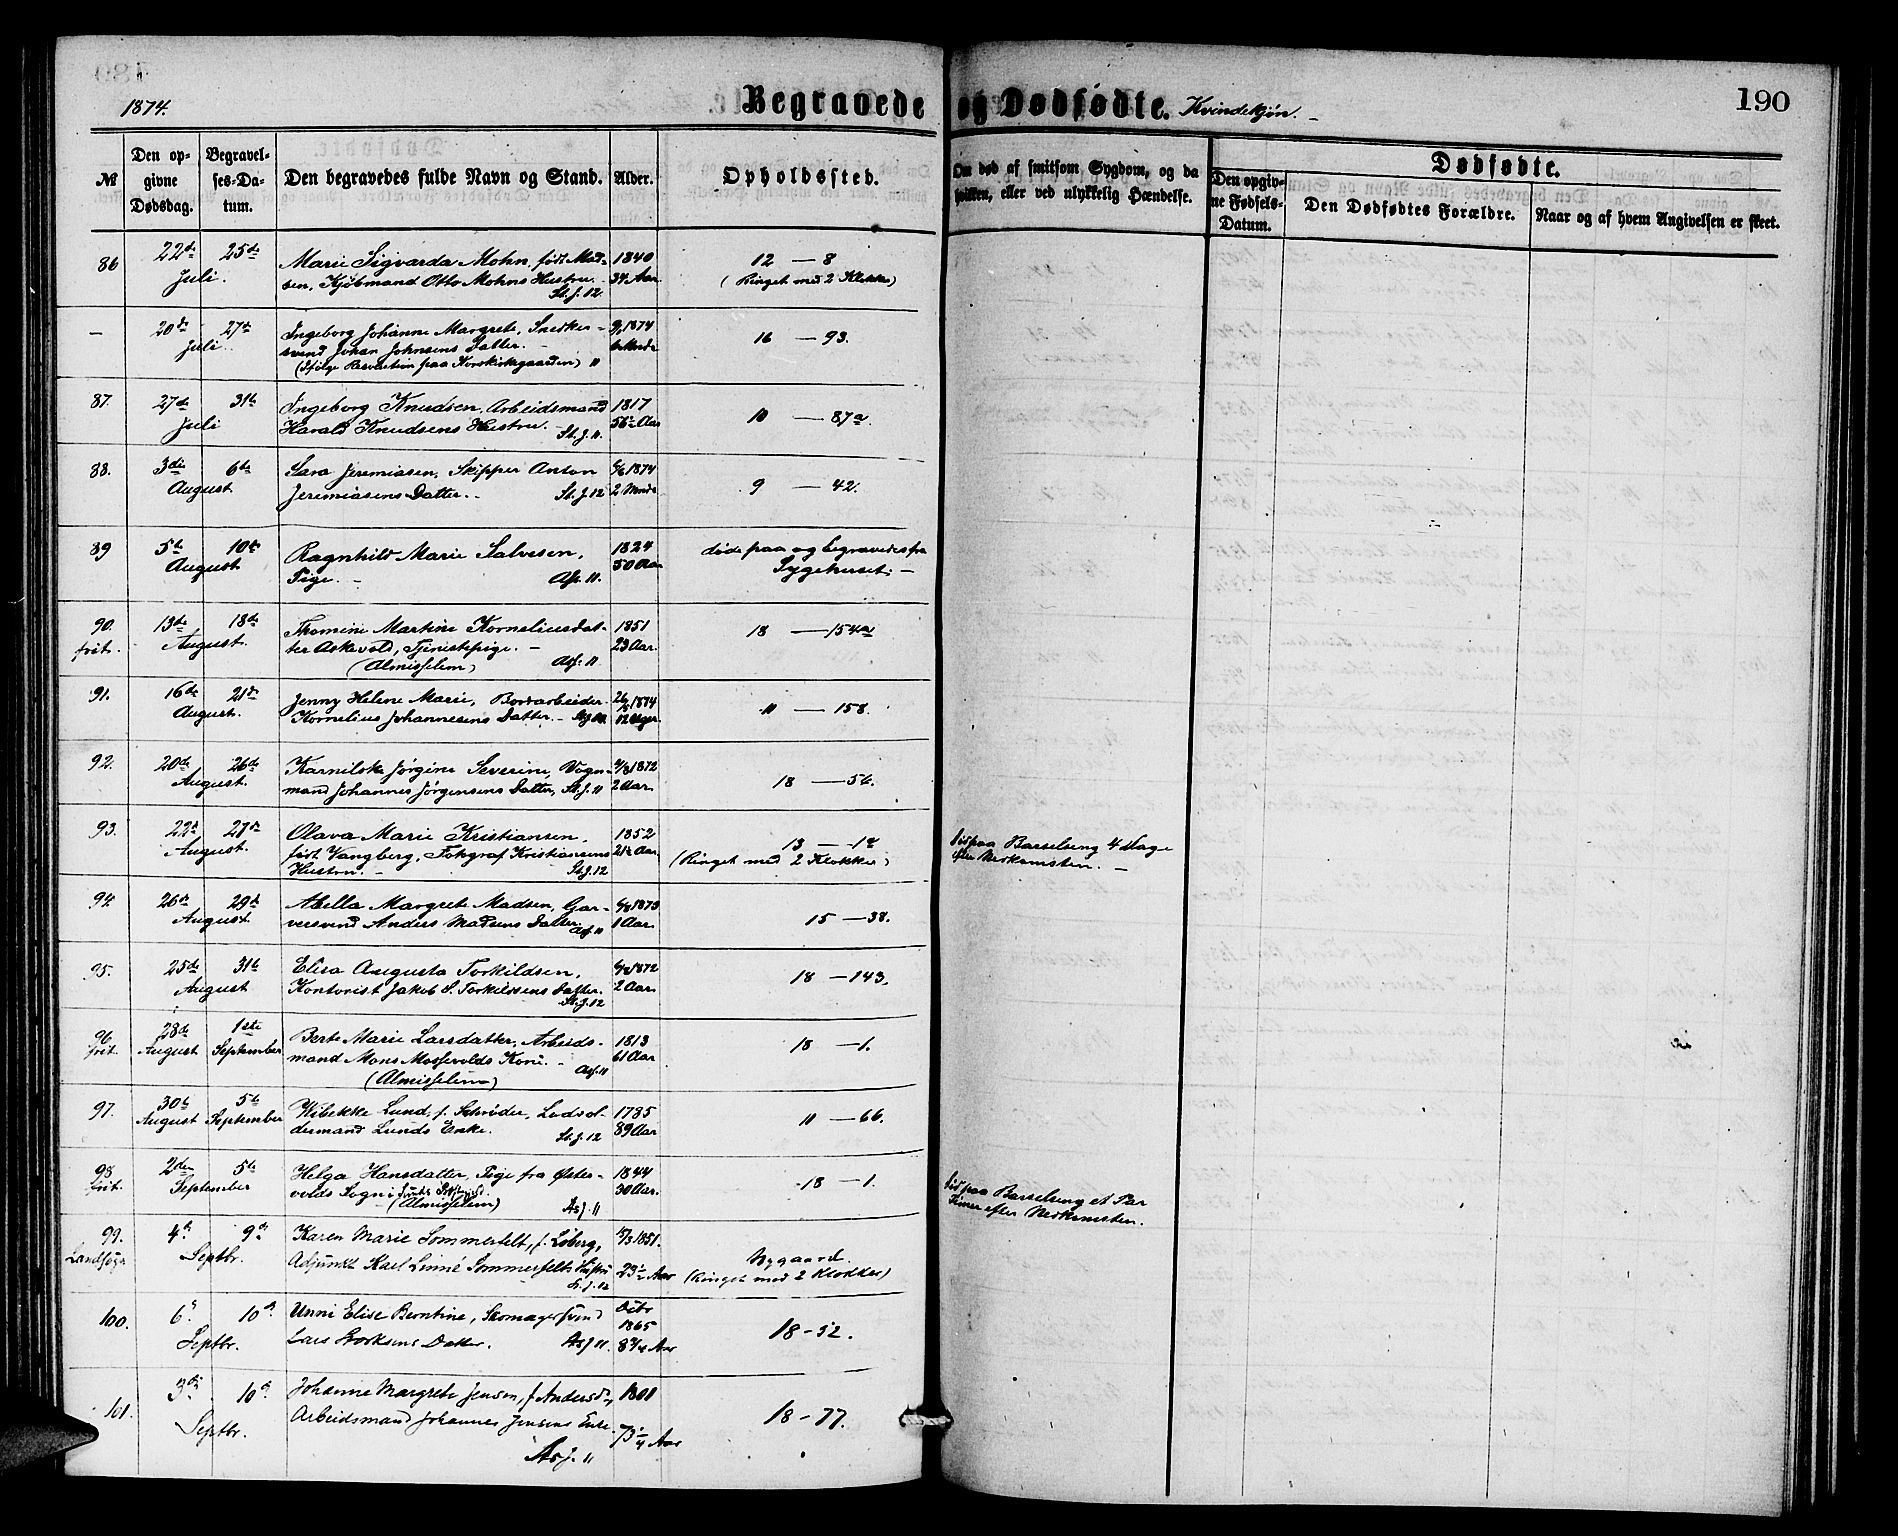 1874.
Begravede og Dødfødte. Kvindekjøn.
190
№
Den op-
givne
Dødsdag.
Begravel-
ses-Da-
tum.
Den begravedes fulde Navn og Stand.
Alder.
Opholdssted.
Om død af smitsom Sygdom, og da
hvilken, eller ved ulykkelig Hændelse.
Dødfødte.
Den opgiv-
ne Fødsels-
Datum.
Den Dødfødtes Forældre.
Naar og af hvem Angivelsen er skeet.
86 22de 25de Juli.
Marie Sigvarda Mohn, født Mad-
sen, Kjøbmand Otto Mohns Hustru.
St. J. 12.
1840
34 Aar
12 — 8
(Ringet med 2 Klokker)
— 20de 27de Juli.
Ingeborg Johanne Margrete, Snedker-
svend Johan Johnsens Datter. —
(Ifølge Reservation paa Korskirkegaarden) 11
1874
16 — 93.
87. 27de 31te Juli
Ingeborg Knudsen, Arbeidsmand
Harald Knudsens Hustru. St. J. 11.
1817
56½ Aar
10 — 87a.
88. 3die 6te August
Sara Jeremiasen, Skipper Anton
Jeremiasens Datter. St. J. 12
1874
2 Mndr
9 — 42.
89 5te 10de August.
Ragnhild Marie Salvesen,
Pige. — Asf. 11.
1824
50 Aar
døde paa og begravedes fra
Sygehuset. —
90. frit. 13de 18de August.
Thomine Martine Korneliusdat-
ter Askevold, Tjenestepige. —
(Almisselem) Asf. 11
1851
23 Aar.
18 — 154a
91. 16de 21de August.
Jenny Helene Marie, Bordarbeider
Kornelius Johannesens Datter. —
1874
12 Uger
11 — 158.
92. 20de 26de August.
Karnilske Jørgine Severine, Vogn-
mand Johannes Jørgensens Datter, St. J. 11
4/8 1872
2 Aar.
18 — 56.
93. 22de 27de August.
Olava Marie Kristiansen,
født Vangberg, Fotograf Kristiansens
Hustru. — St. J. 12
1852
21½ Aar.
13 — 1a
(Ringet med 2 Klokker)
Død paa Barselseng 4 Dage
efter Nedkomsten. —
94. 26de 29de August.
Abella Margrete Madsen, Gar-
versvend Anders Madsens Datter. Asf. 11
1873
1 Aar.
15 — 38.
95. 25de 31te August
Elisa Augusta Torkildsen,
Kontorist Jakob S. Torkildsens Datter.
St. J. 12
1872
2 Aar.
18 — 143.
96. frit. 28de August 1ste September
Berte Marie Larsdatter, Arbeids-
mand Mons Mossevolds Kone. —
(Almisselem) Asf. 11
1813
61 Aar
18 — 1.
97. 30te August 5te September
Wibekke Lund, f. Schrøder, Lodsol-
dermand Lunds Enke. St. J. 12
1785
89 Aar
11 — 66.
98 frit. 2den 5te September
Helga Hansdatter, Pige fra
volds Sogn i
(Almisselem) Asf. 11
1844
30 Aar.
18 — 1.
Død paa Barselseng et Par
Timer efter Nedkomsten.
99. Landsogn 4de 9de Septbr.
Karen Marie Sommerfelt, f. Loberg,
Adjunkt Karl Linné Sommerfelts Hustru
St. J. 12
1851.
23½ Aar
Nygaard.
(Ringet med 2 Klokker)
100. 6te 10de Septbr.
Unni Elise Berntine, Skomagersvend
Lars Datter. Asf 11.
Octbr
1865
8¾ Aar
18 – 52.
101. 3die 10de Septbr.
Johanne Margrete Jensen, f. Andersd.,
Arbeidsmand Johannes Jensens Enke.
Asf. 11
1801
73¼ Aar
18 – 77.